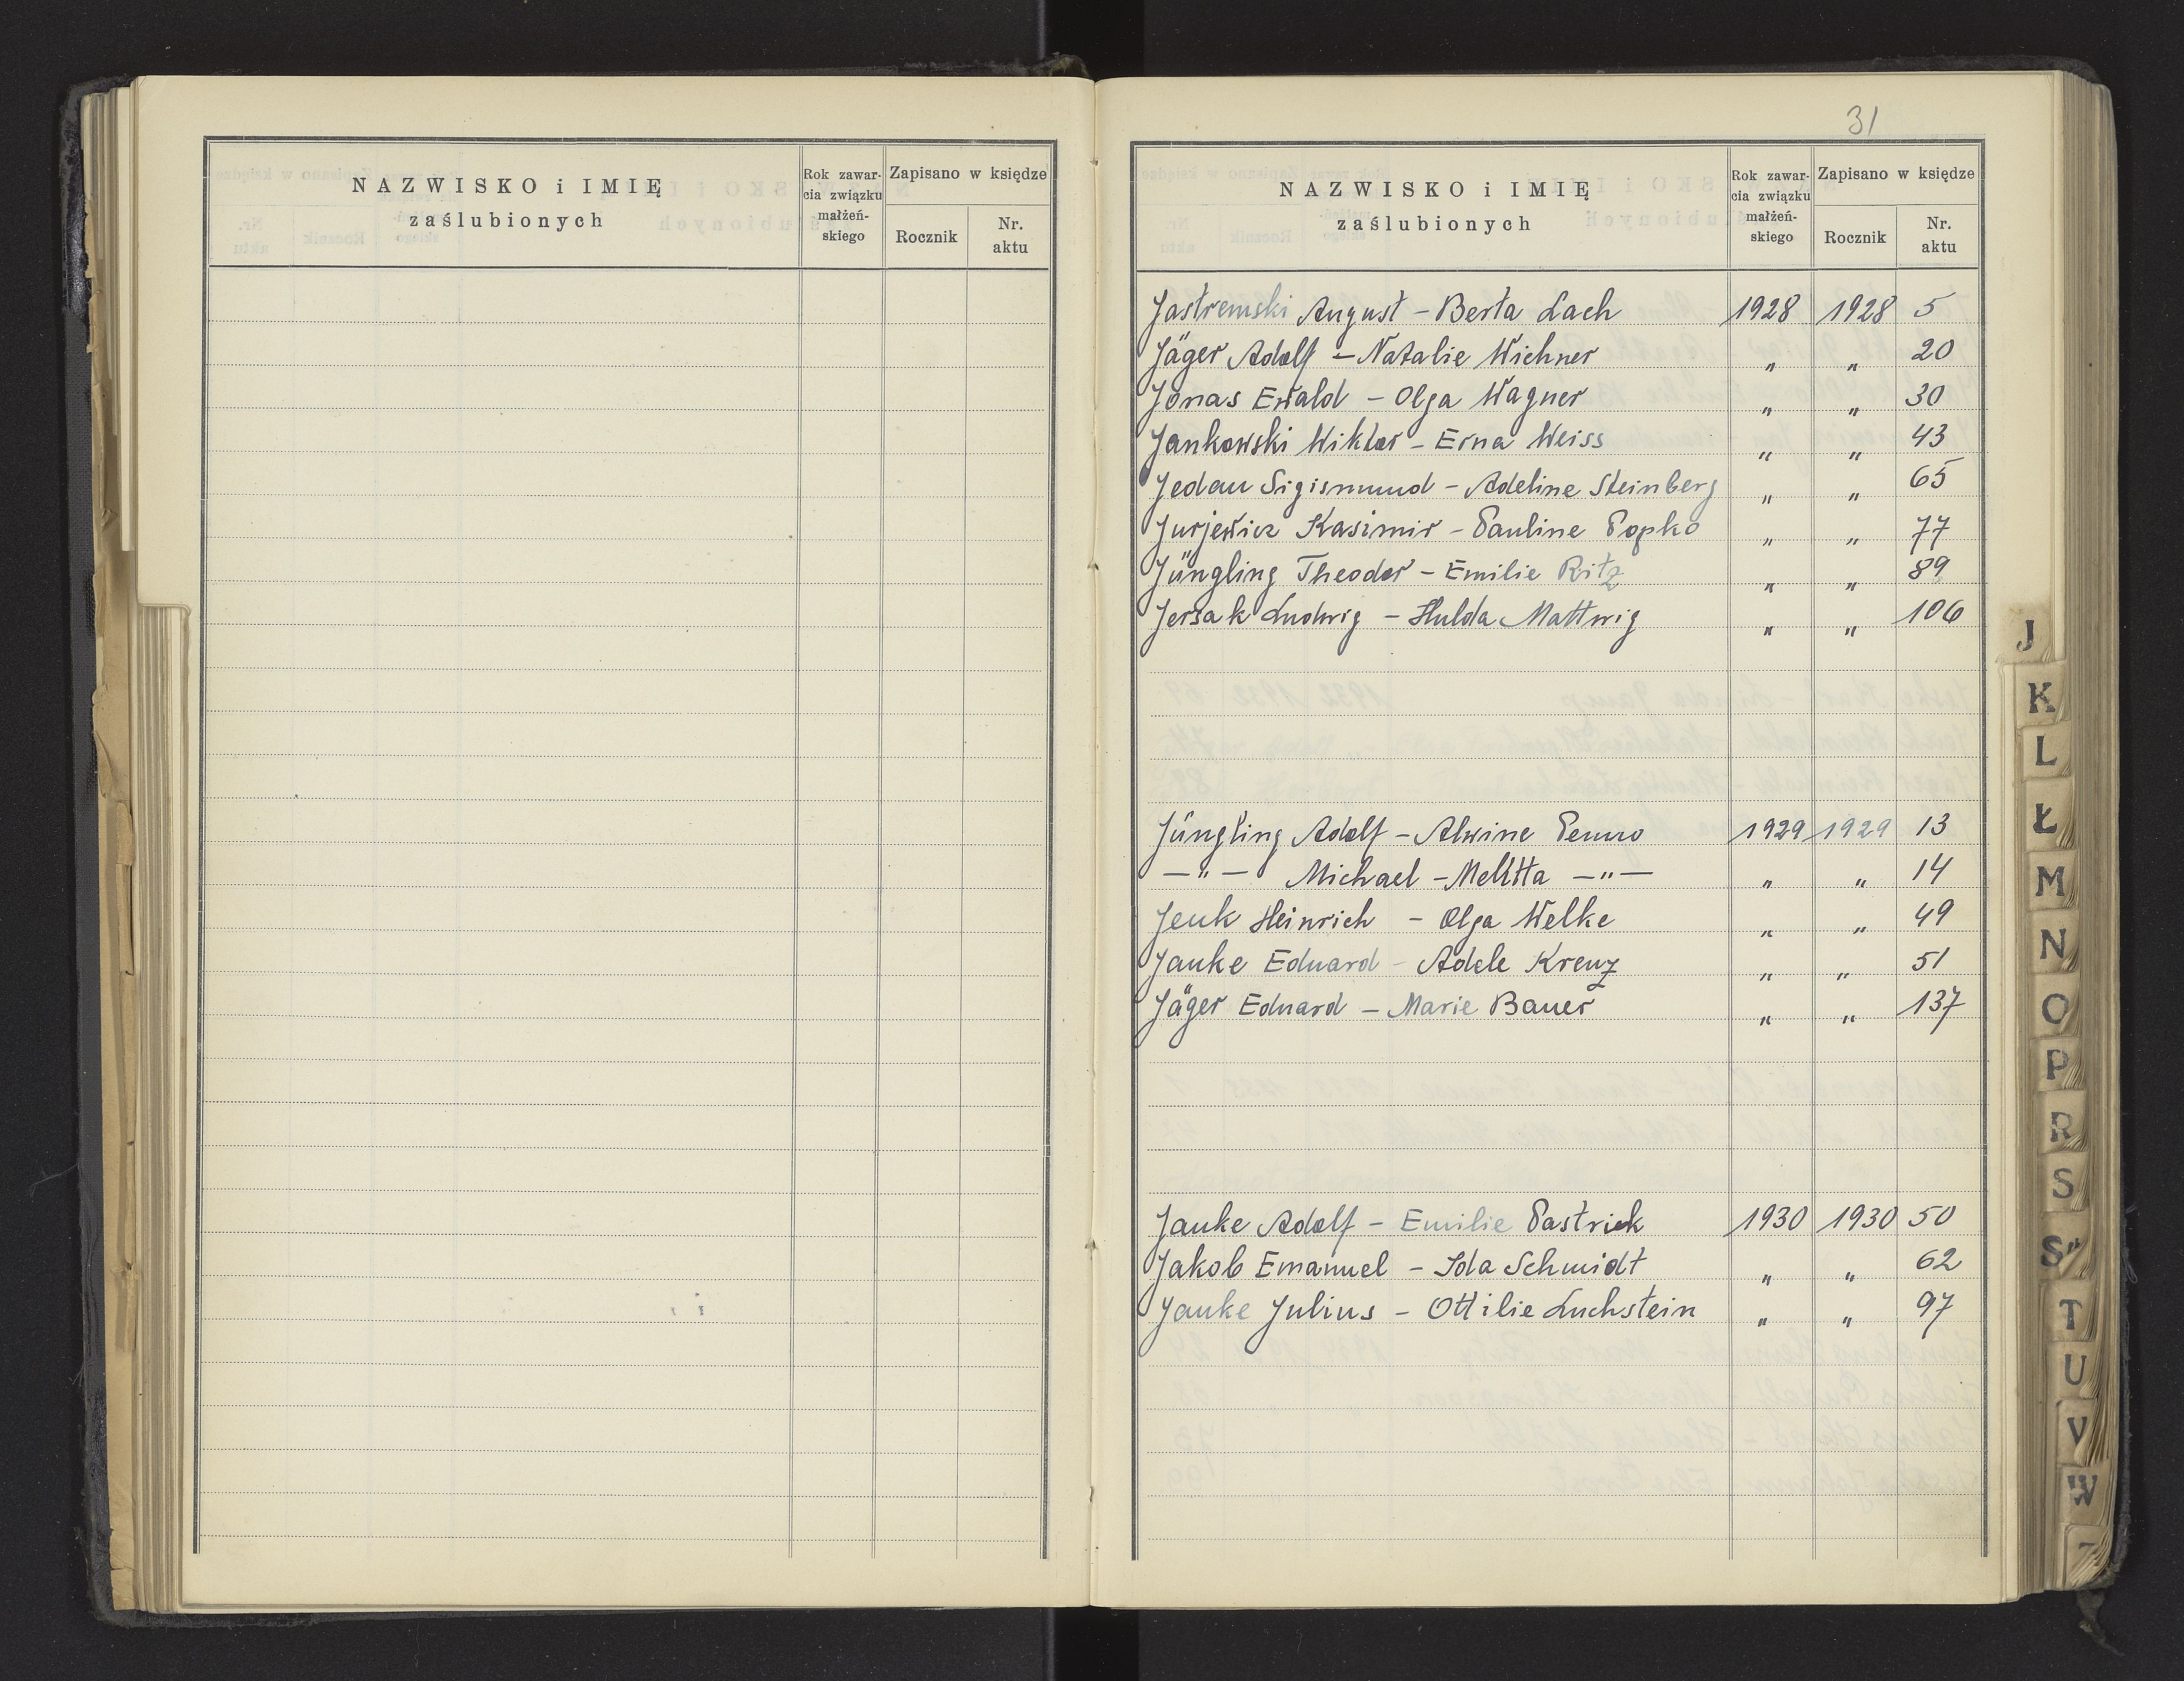 NAZWISKO i IMIĘ
zaślubionych
Rok zawar-
cia związku
małżeń-
skiego
Zapisano w księdze
Rocznik
Nr.
aktu
31
NAZWISKO i IMIĘ
zaślubionych
Rok zawar-
cia związku
małżeń-
skiego
Zapisano w księdze
Rocznik
Nr.
aktu
Jastremski August – Berta Lach 1928 1928 5
Jäger Adolf – Natalie Wichner " " 20
Jonas Ewald – Olga Wagner " " 30
Jankowski Wiktor – Erna Weiss " " 43
Jedau Sigismund – Adeline Steinberg " " 65
Jurjewicz Kasimir – Pauline Popko " " 77
Jüngling Theodor – Emilie Ritz " " 89
Jersak Ludwig – Hulda Mattwig " " 106
Jüngling Adolf – Alwine Penno 1929 1929 13
—"— Michael – Melitta —"— " " 14
Jeuk Heinrich – Olga Welke " " 49
Janke Eduard – Adele Kreuz " " 51
Jäger Eduard – Marie Bauer " " 137
Janke Adolf – Emilie Pastrick 1930 1930 50
Jakob Emanuel – Ida Schmidt " " 62
Janke Julius – Ottilie Luchstein " " 97
J
K
L
Ł
M
N
O
P
R
S
S"
T
U
V
W